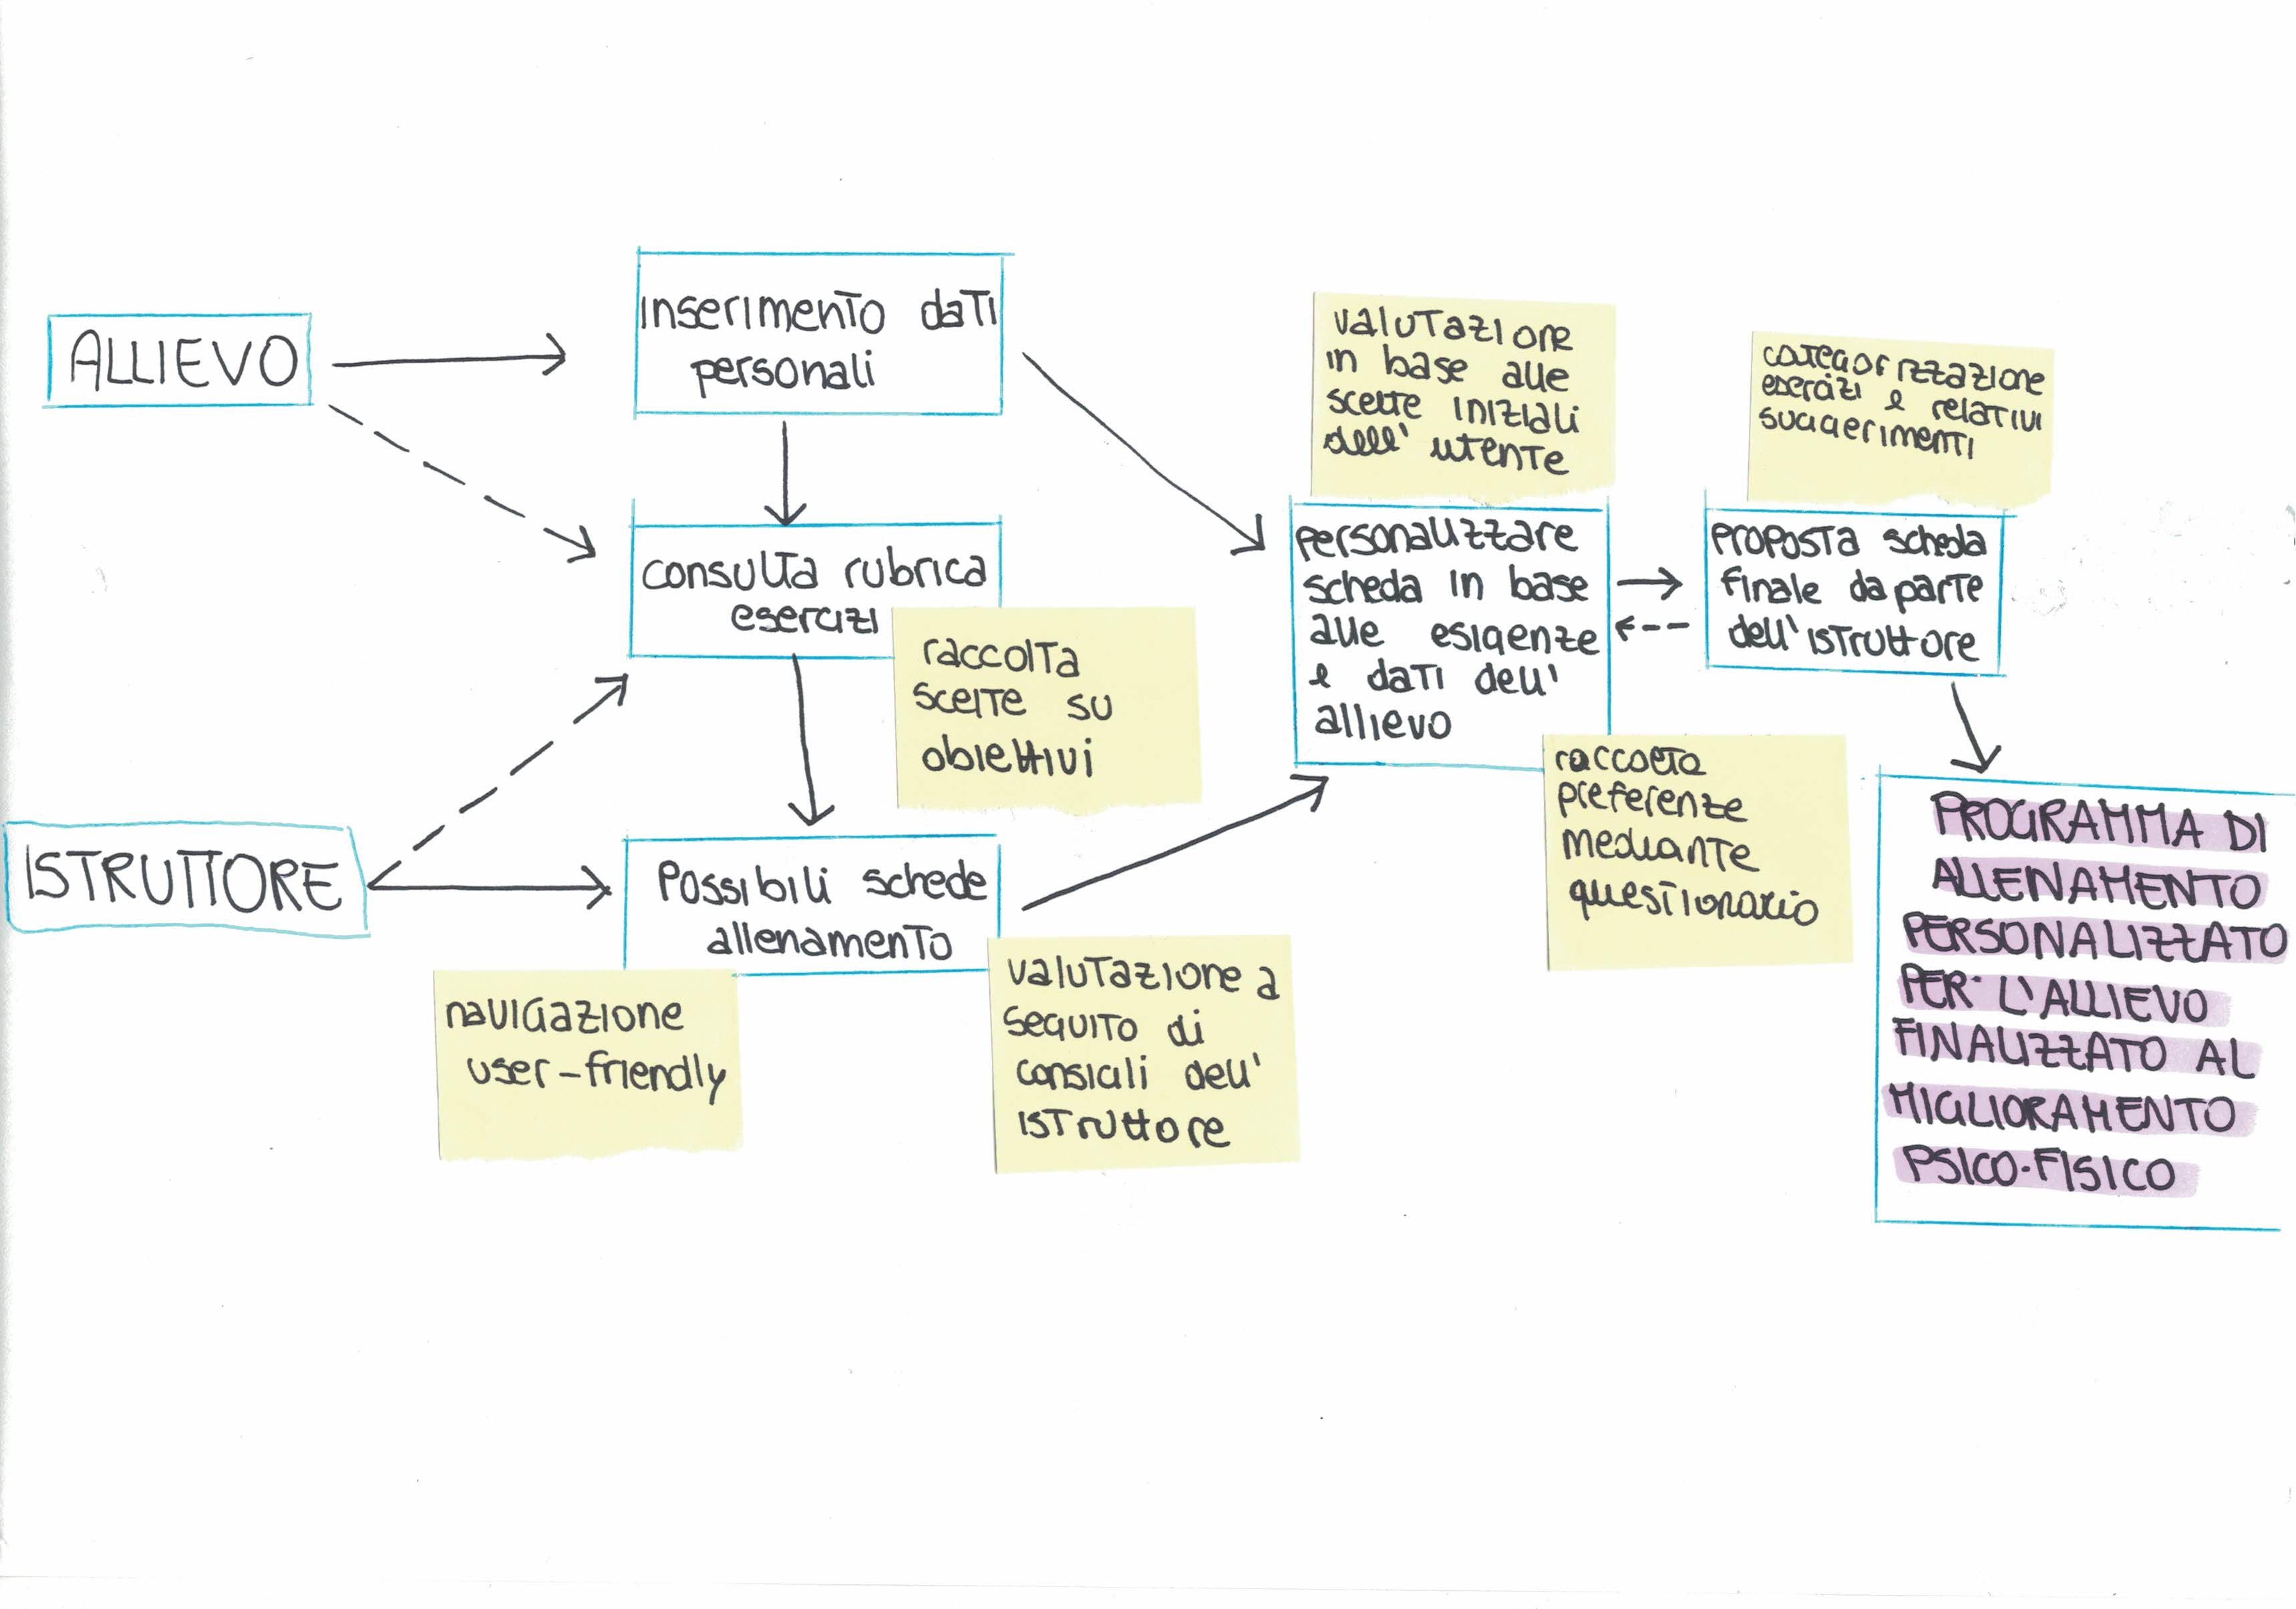 ALLIEVO
inserimento dati
personali
consulta rubrica
esercizi
raccolta
scelte su
obiettivi
ISTRUTTORE
Possibili schede
allenamento
navigazione
user-friendly
valutazione a
seguito di
consigli dell'
istruttore
valutazione
in base alle
scelte iniziali
dell' utente
personalizzare
scheda in base
alle esigenze
e dati dell'
allievo
raccolta
preferenze
mediante
questionario
categorizzazione
esercizi e relativi
suggerimenti
proposta scheda
finale da parte
dell' istruttore
PROGRAMMA DI
ALLENAMENTO
PERSONALIZZATO
PER L'ALLIEVO
FINALIZZATO AL
MIGLIORAMENTO
PSICO-FISICO